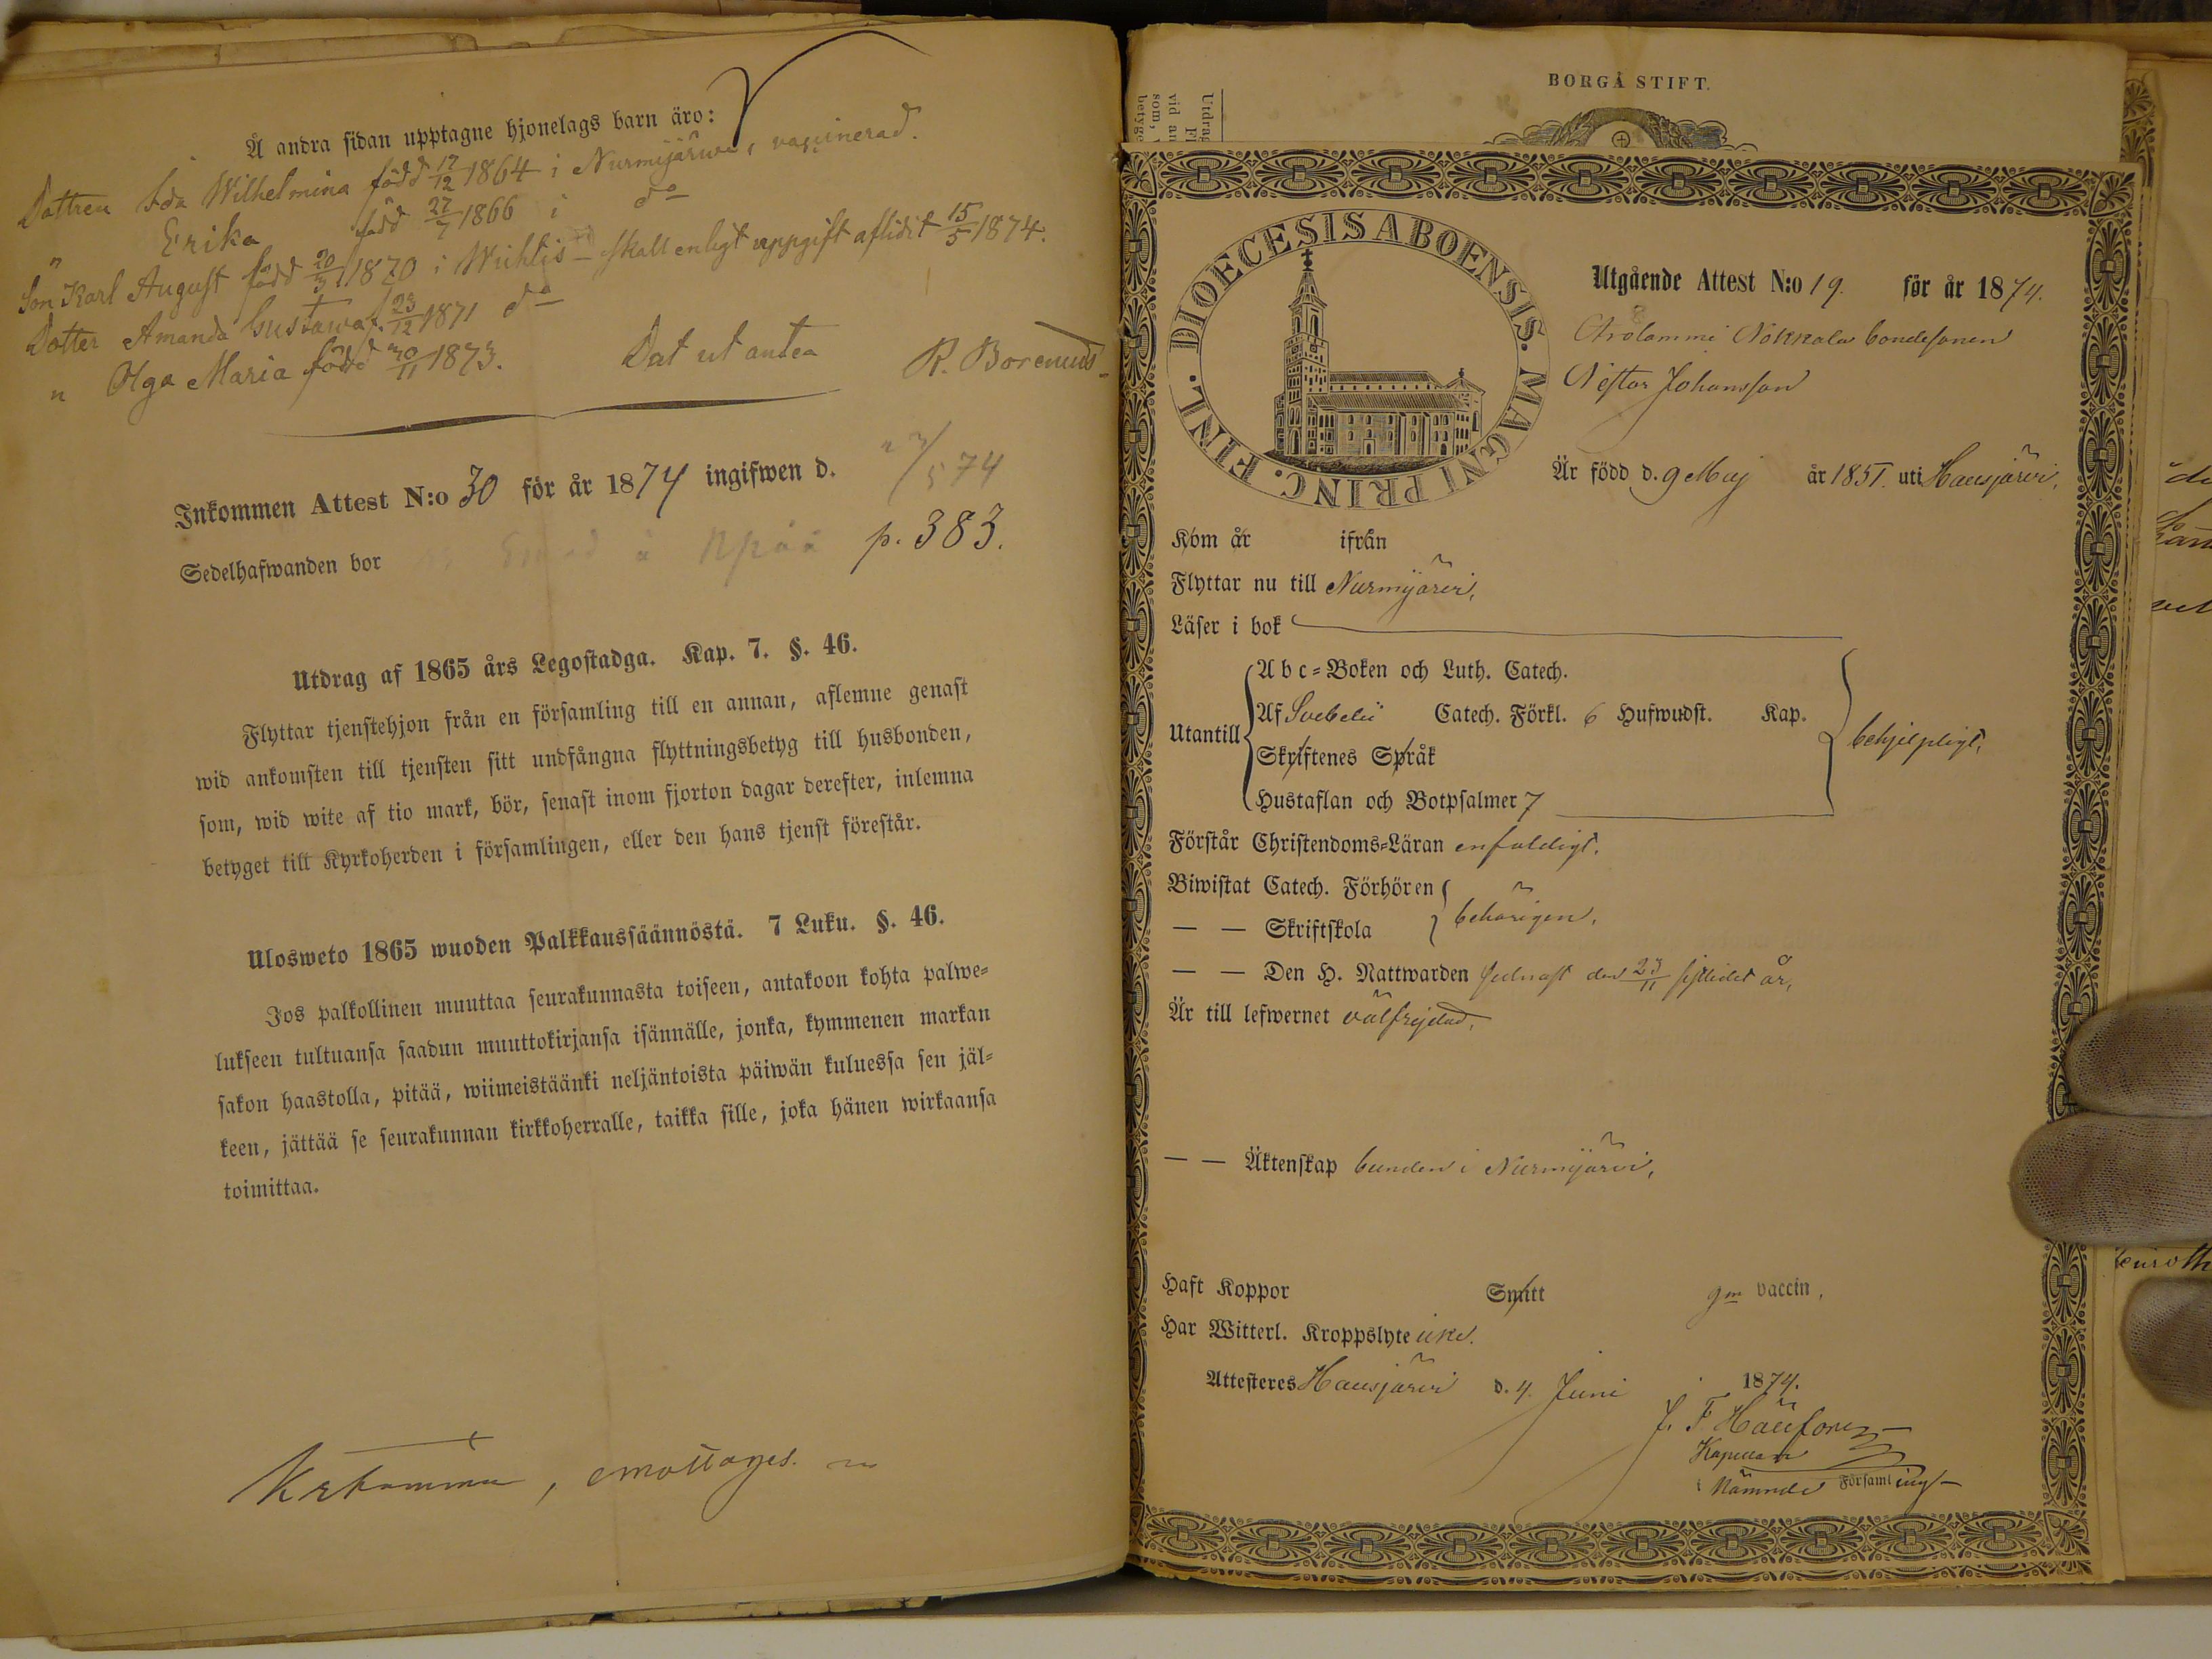 Å andra sidan upptagne hjonelags barn äro:
Dottren Ida Wilhelmina född 17/12 1864 i Nurmijärwi, vaccinerad.
" Erika född 27/7 1866 i do
Son Karl August född 20/3 1870 i Wichtis – skall enligt uppgift aflidit 15/5 1874.
Dotter Amanda Gustawa f. 23/12 1871 do
" Olga Maria född 30/11 1873.
Dat ut antea
R. Borenius
Inkommen Attest N:o 30 för år 1874 ingifwen d. 27/5 74
Sedelhafwanden bor p. 383.
Utdrag af 1865 års Legostadga. Kap. 7. §. 46.
Flyttar tjenstehjon från en församling till en annan, aflemne genast
wid ankomsten till tjensten sitt undfångna flyttningsbetyg till husbonden,
som, wid wite af tio mark, bör, senast inom fjorton dagar derefter, inlemna
betyget till Kyrkoherden i församlingen, eller den hans tjenst förestår.
Ulosweto 1865 wuoden Palkkaussäännöstä. 7 Luku. §. 46.
Jos palkollinen muuttaa seurakunnasta toiseen, antakoon kohta palwe=
lukseen tultuansa saadun muuttokirjansa isännälle, jonka, kymmenen markan
sakon haastolla, pitää, wiimeistäänki neljäntoista päiwän kuluessa sen jäl=
keen, jättää se seurakunnan kirkkoherralle, taikka sille, joka hänen wirkaansa
toimittaa.
emottages.
BORGÅ STIFT.
DIOECESIS ABOENSIS. MAGNI PRINC. FINL.
Utgående Attest N:o 19. för år 1874.
Arolammi Nokkala bondesonen
Nestor Johansson
Är född d. 9 Maj år 1851. uti Hausjärvi,
Kom år ifrån
Flyttar nu till Nurmijärvi,
Läser i bok
Utantill
Abc=Boken och Luth. Catech.
Af Svebelii Catech. Förkl. 6 Hufwudst. Kap.
Skriftenes Språk
Hustaflan och Botpsalmer 7
behjelpligt,
Förstår Christendoms=Läran enfaldigt.
Biwistat Catech. Förhören
— — Skriftskola
behörigen,
— — Den H. Nattwarden sednast den 23/11 sistlidet år,
Är till lefwernet välfrejdad,
— — Äktenskap bunden i Nurmijärvi,
Haft Koppor Smitt gm vaccin,
Har Witterl. Kroppslyte icke.
Attesteres Hausjärvi d. 4 Juni 1874.
Kapellan
i Nämnde Församling